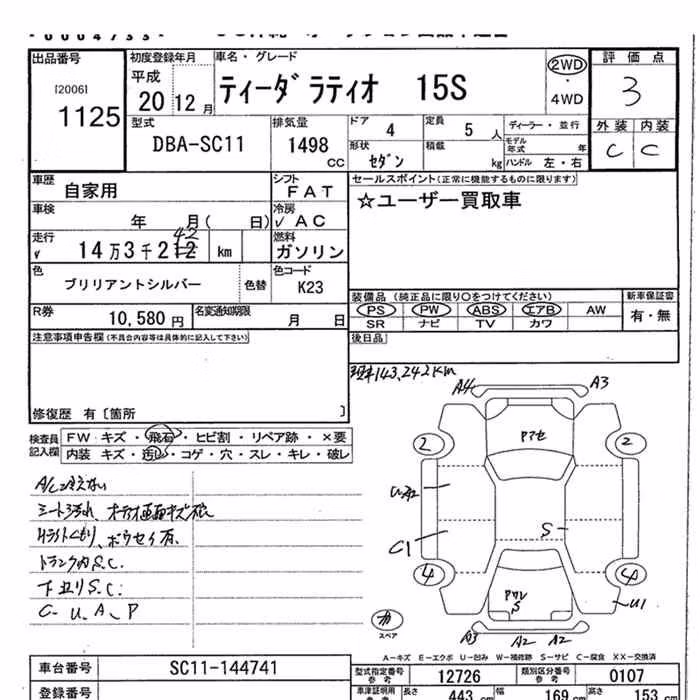 出品番号 初度登録年月 車名・グレード 評価点
[2006]
1125
平成
20 12月
ティーダ ラティオ 15S
2WD
・
4WD
3
型式 排気量 ドア 4 定員 5 人 ディーラー・並行 外装 内装
DBA-SC11 1498 CC
形状 セダン 積載 kg
モデル年式 年
ハンドル 左・右
C C
車歴 自家用 シフト FAT
セールスポイント(正常に機能するものに限ります)
☆ユーザー買取車
車検 年 月( 日) 冷房 AC
走行 14万3千212 42 km 燃料 ガソリン
色 ブリリアントシルバー 色替 色コード K23
装備品 (純正品に限り○をつけてください) 新車保証書
PS PW ABS エアB AW
SR ナビ TV カワ
有・無
R券 10,580円 名変通知期限 月 日
注意事項申告欄(不具合内容等は具体的に記入して下さい)
後日品
現車143,242km
修復歴 有〔箇所 〕
検査員記入欄
FW キズ・飛石・ヒビ割・リペア跡・×要
内装 キズ・汚し・コゲ・穴・スレ・キレ・破レ
A/C冷えない
シート汚れ、オーディオ画面キズ
ライトくもり、ボウセイ有.
トランク内S.C.
下廻りS.C.
C. U. A. P
A4 A3
Pアセ
2 2
U.A2
C1
S
4 4
Pワレ
S
U1
A3 A2 A2
スペア
A-キズ E-エクボ U-凹み W-補修跡 S-サビ C-腐食 XX-交換済
車台番号 SC11-144741
型式指定番号 参考 12726 類別区分番号 参考 0107
登録番号
車庫証明用 参考 長さ 443 cm 幅 169 cm 高さ 153 cm